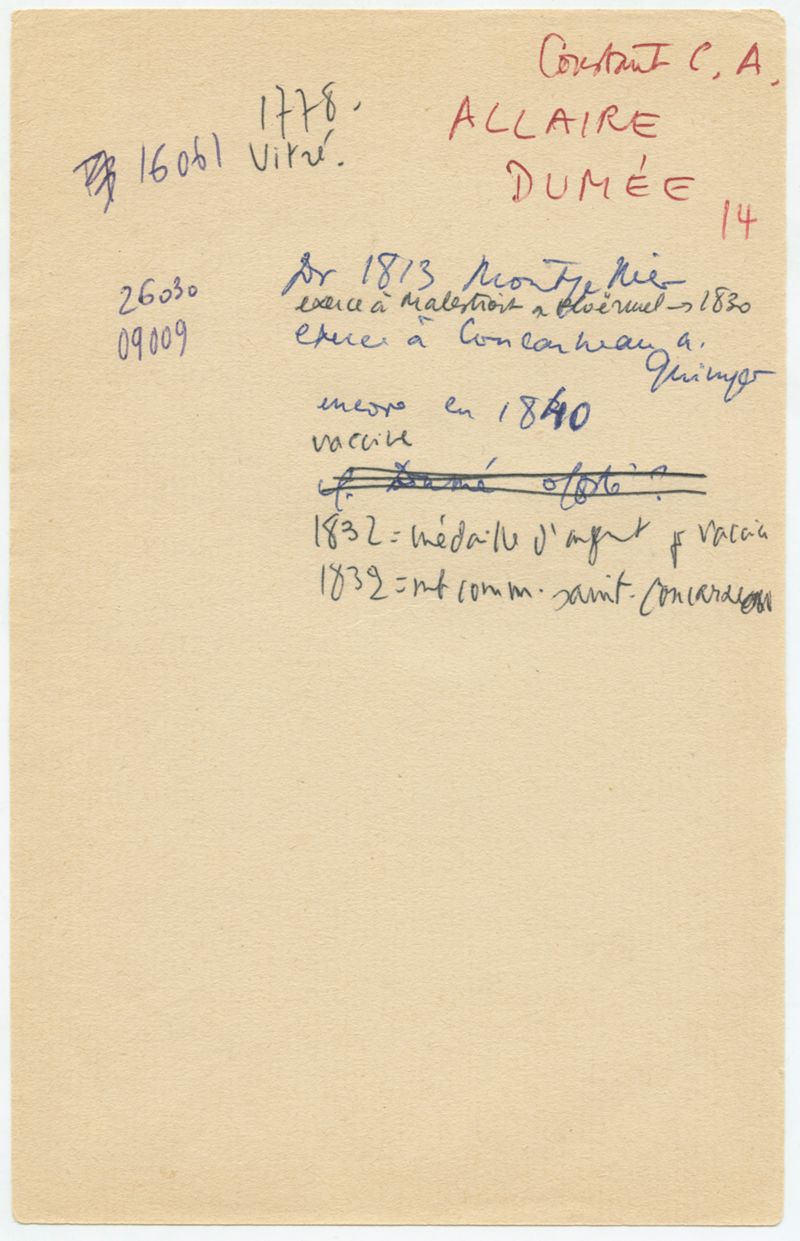 Constant C. A.
ALLAIRE
DUMÉE
14
1778.
16061 Vitré.
26030
09009
Dr 1813 Montpellier
exerce à Malestroit a. Ploërmel → 1830
exerce à Concarneau a.
Quimper
encore en 1840
vaccine
cf. Dumé ?
1832 = médaille d'argent pr vaccin
1839 = mb comm. sanit. Concarneau